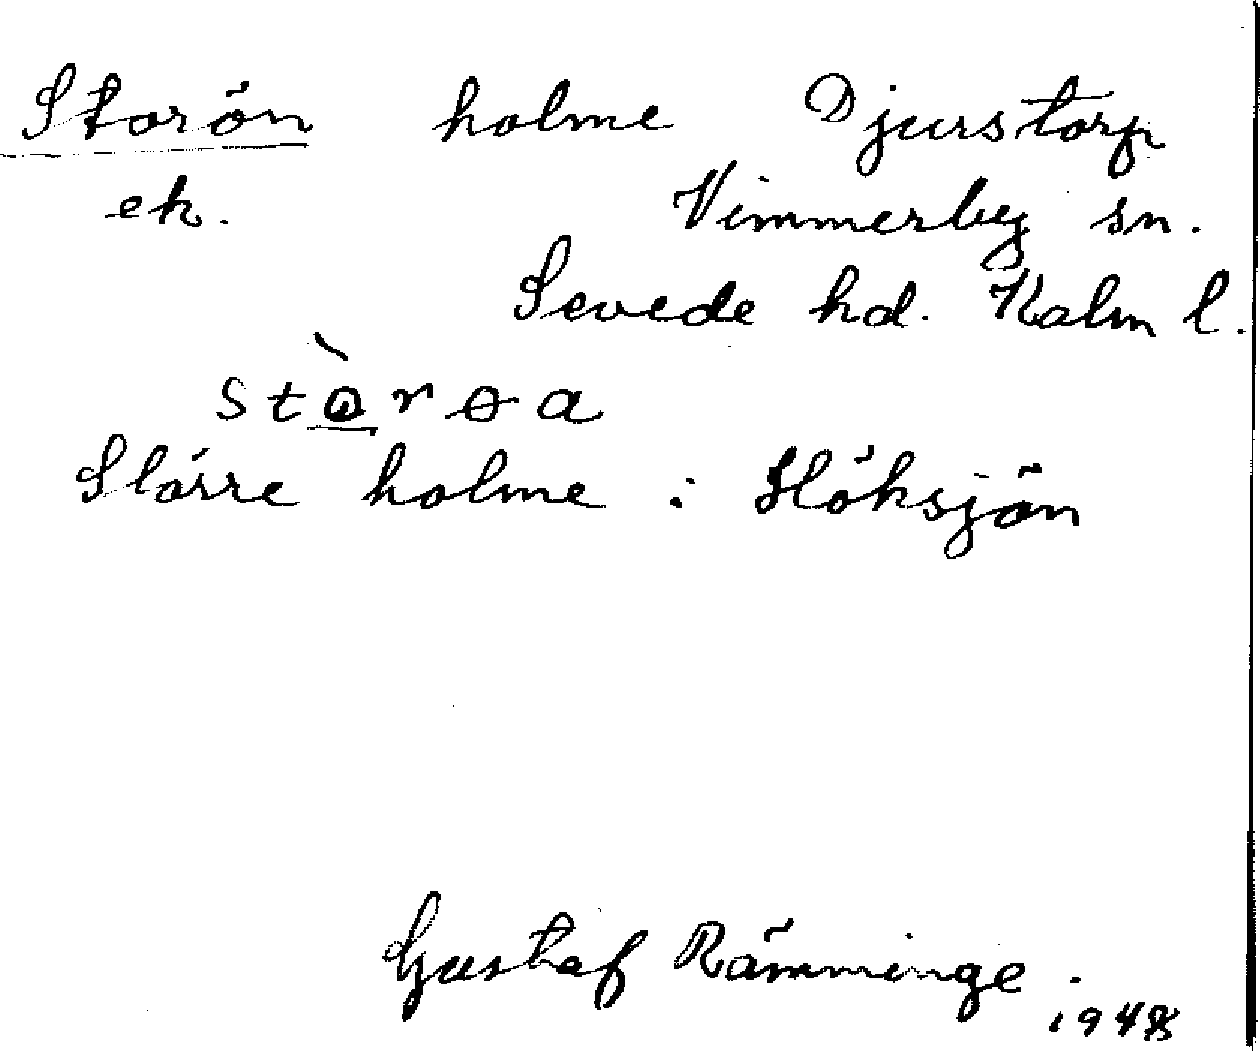 Storön holme Djurstorp
ek. Vimmerby sn.
Sevede hd. Kalm l.
stòrɵa
Större holme i Höksjön
Gustaf Rämminge.